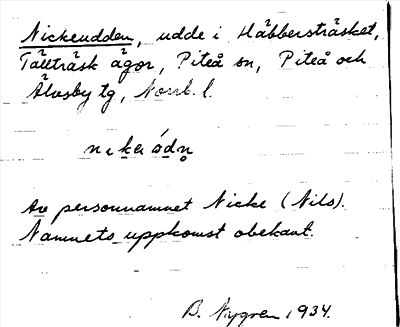 Nickeudden, udde i Häbbersträsket,
Tällträsk ägor, Piteå sn, Piteå och
Älvsby tg, Norrb. l.
nıkɐódn̥
Av personnamnet Nicke (Nils).
Namnets uppkomst obekant.
B. Nygren 1934.